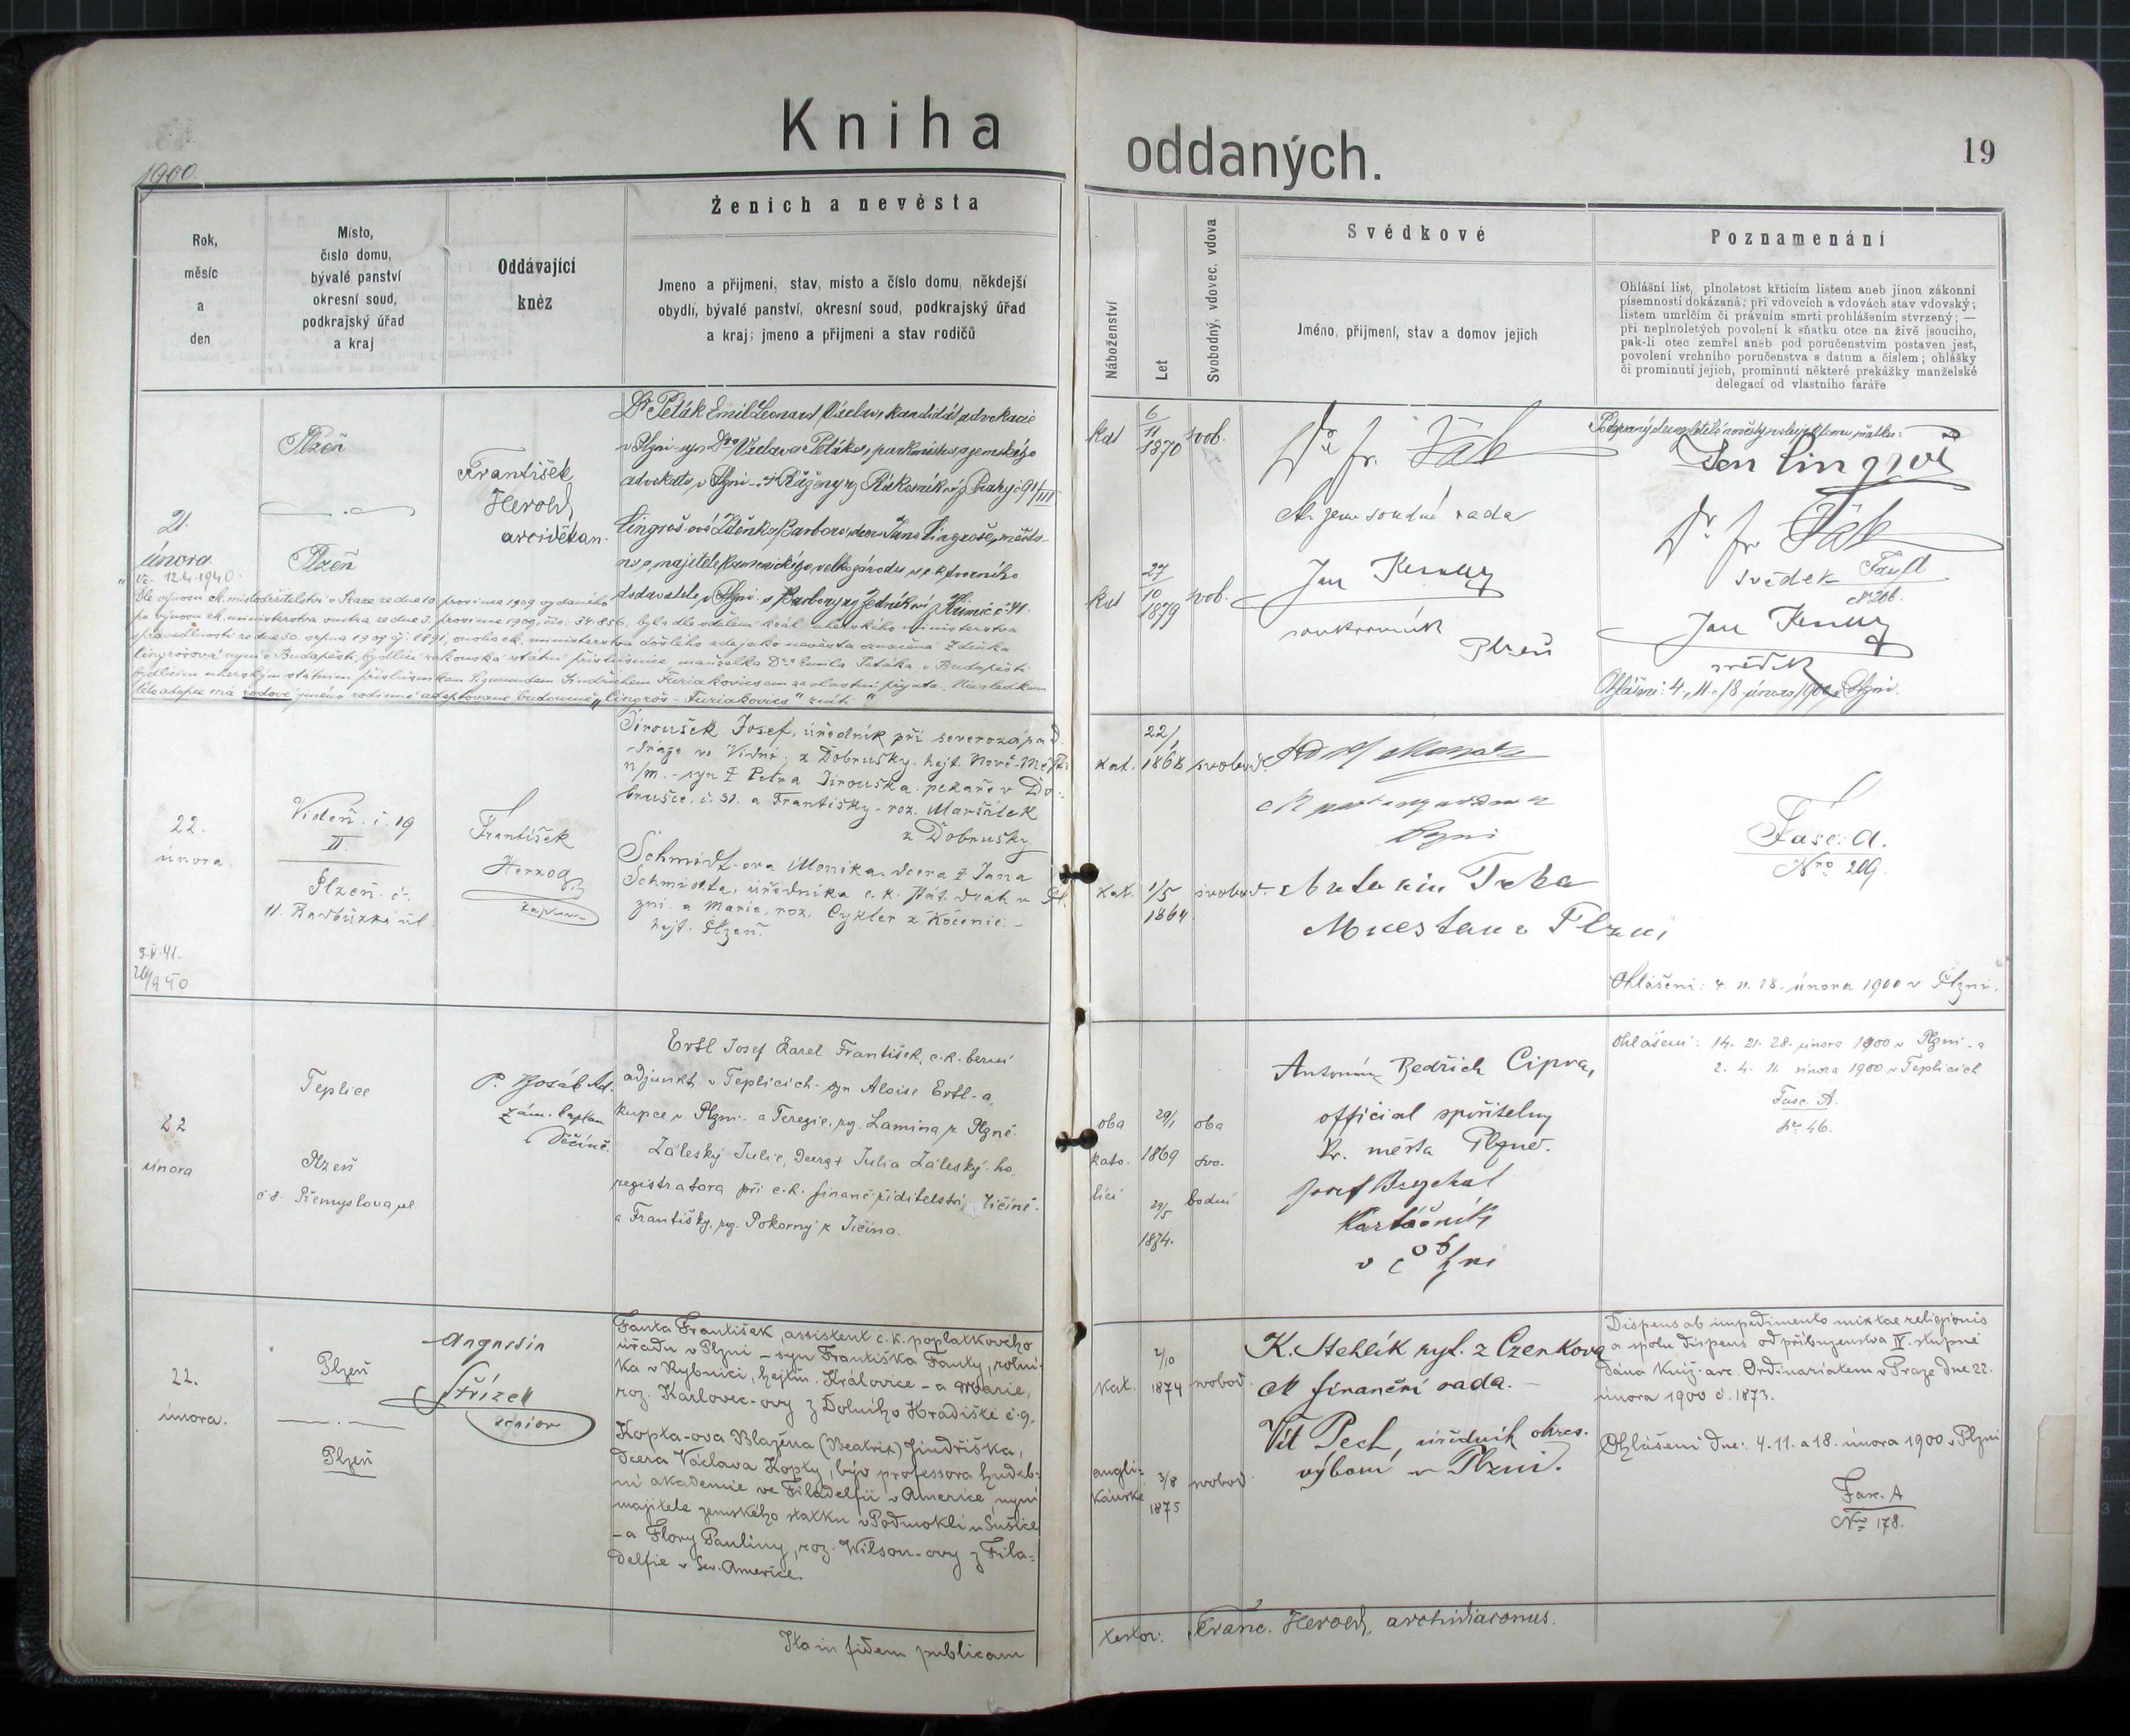 Kniha
oddaných.
19
1900.
Rok,
měsíc
a
den
Místo,
číslo domu,
bývalé panství
okresní soud,
podkrajský úřad
a kraj
Oddávající
kněz
Ženich a nevěsta
Jmeno a přijmeni, stav, místo a číslo domu, někdejší
obydlí, bývalé panství, okresní soud, podkrajský úřad
a kraj; jmeno a přijmeni a stav rodičů
Náboženství
Let
Svobodný, vdovec, vdova
Svědkové
Jméno, přijmení, stav a domov jejich
Poznamenání
Ohlášní list, plnoletost křticím listem aneb jinou zákonní
písemností dokázaná; při vdovcích a vdovách stav vdovský;
listem umrlčím či právním smrti prohlášením stvrzený; —
při neplnoletých povolení k sňatku otce na živě jsoucího,
pak-li otec zemřel aneb pod poručenstvím postaven jest,
povolení vrchního poručenstva s datum a číslem; ohlášky
či prominutí jejich, prominutí některé prekážky manželské
delegací od vlastního faráře
21.
února
12.4.1940.
Plzeň
Plzeň
František
Herold,
arciděkan.
Dr Peták Emil Leonard Václav, kandidát advokacie
v Plzni - syn Dra Václava Petáka, purkmistra a zemského
advokáta v Plzni - a Růženy
Lingroš-ová Zdeňka Barbora, dcera Jana Lingroše, měšťa-
na a majitele kamenického velkozávodu a c. k. dvorního
dodavatele v Plzni a Barbory
Dle výnosu ck. místodržitelství v Praze ze dne 10. prosince 1909 vydaného
po výnosu ck. ministerstva vnitra ze dne 3. prosince 1909, čís. 34.856, bylo dle sdělení král. uherského ministerstva
spravedlnosti ze dne 30. srpna 1909 čj. 1891, onoho ck. ministerstva došlého zde jako nevěsta označená Zdeňka
Lingrošová nyní v Budapešti bydlící rakouská státní příslušnice, manželka Dra Emila Petáka, v Budapešti
bydlícím uherským státním příslušníkem Sigmundem Jindřichem Furiakovicsem za vlastní přijata. Následkem
této adopce má rodové jméno rodinné adoptované budoucně „Lingroš - Furiakovics" zníti."
kat
6
11
1870
svob.
kat
27
10
1879
svob.
Dr Fr. Žák
ck zem. soudní rada
Jan
soukromník
Plzeň
Jan Lingroš
Dr Fr. Žák
svědek
No 206.
Jan
svědek
Ohlášení: 4., 11. a 18. února 1900 v Plzni.
22.
února.
3.V.41.
Vídeň. č. 19
II.
Plzeň. č.
11. Radbůzká úl.
František
Herzog
kaplan
Jiroušek Josef, úředník při severozápad.
dráze ve Vídni, z Dobrušky. hejt. Nové-Město
n/m. - syn † Petra Jirouška. pekaře v Do-
brušce. č. 31. a Františky - roz. Maršálek
z Dobrušky
Schmidt-ova Monika, dcera † Jana
Schmidta, úředníka c. k. stát. drah v Pl-
zni. a Marie. roz. Cykler z Kočenic. -
hejt. Plzeň.
kat.
22/1
1868
svobod.
kat.
1/5
1864.
svobod.
Plzni
Antonin Treba
Mnestan v Plzni
Fasc: A.
Nro 209.
Ohlášení: 4. 11. 18. února 1900 v Plzni.
22
února
Teplice
Plzeň
č 8. Přemyslova ul.
zám. kaplan
Děčíně.
Ertl Josef Karel František, c. k. berní
adjunkt v Teplicích - syn Aloise Ertl-a,
kupce v Plzni. a Terezie, roz. Lamina z Plzně.
Záleský Julie, Dcera † Julia Záleský-ho,
registratora při c. k. finanč. ředitelství Jičíně -
a Františky, roz. Pokorný z Jičína.
oba
kato-
líci
29/1
1869
29/5
1874.
oba
svo-
bodni
Antonín Bedřich Cipra,
official spořitelny
kr. města Plzně.
Josef Brychal
Kartáčník
v Plzni
Ohlášení: 14. 21. 28. února 1900 v Plzni - a
2. 4. 11. února 1900 v Teplicích
Fasc. A.
No 46.
22.
února.
Plzeň
Plzeň
Augustin
Střízek
senior
Fanta František, assistent c. k. poplatkového
úřadu v Plzni - syn Františka Fanty, rolní-
ka v Rybnici, hejtm. Kralovice - a Marie,
roz. Karlovec-ovy z Dolního Hradiště č. 9.
Kopta-ova Blažena (Beatrix) Jindřiška,
dcera Václava Kopty, býv. professora hudeb-
ní akademie ve Filadelfii v Americe, nyní
majitele zemského statku v Podmoklí u Sušice
- a Flory Pauliny, roz. Wilson-ovy z Fila-
delfie v Sev. Americe.
kat.
2/10
1874
svobod.
angli-
kánské
3/8
1875
svobod
K. Stehlík ryt. z Czenkova
ck finanční rada. -
Vít Pech, úředník okres.
výboru v Plzni.
Dispens ab impedimento mixtae religionis
a spolu dispens od příbuzenstva IV. stupně
dána kníž.-arc. Ordinariatem v Praze dne 22.
února 1900 č. 1873.
Ohlášení dne: 4. 11. a 18. února 1900 v Plzni
Fasc. A
Nro 178.
Ita in fidem publicam
testor: Franc. Herold, archidiaconus.